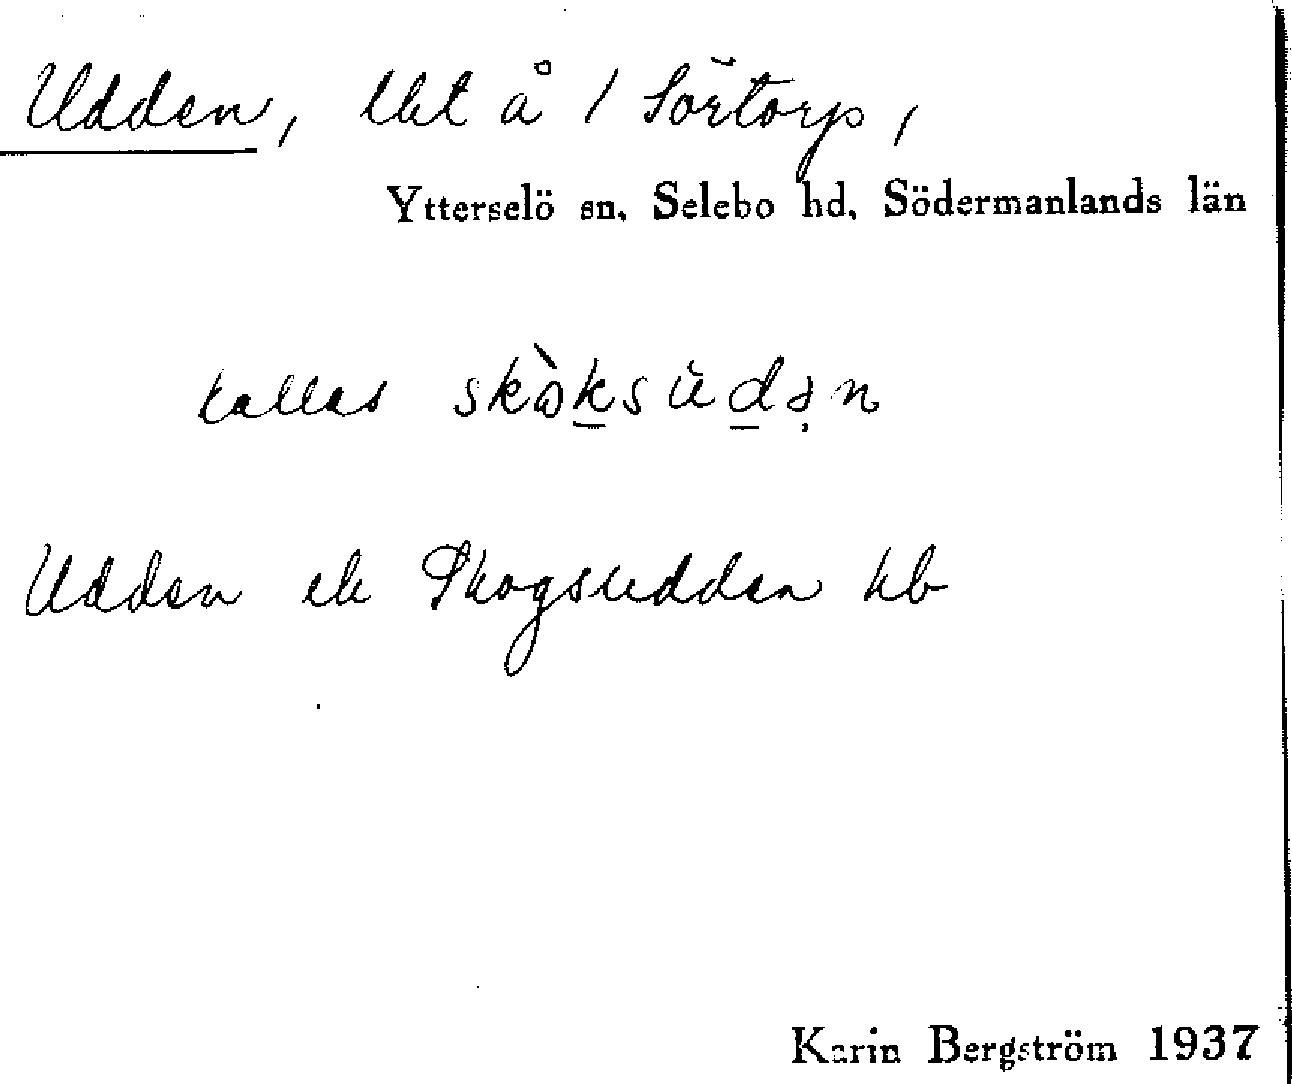 Udden, lht å / Sörtorp,
Ytterselö sn. Selebo hd. Södermanlands län
kallas
Udden el. Skogsudden hb
Karin Bergström 1937